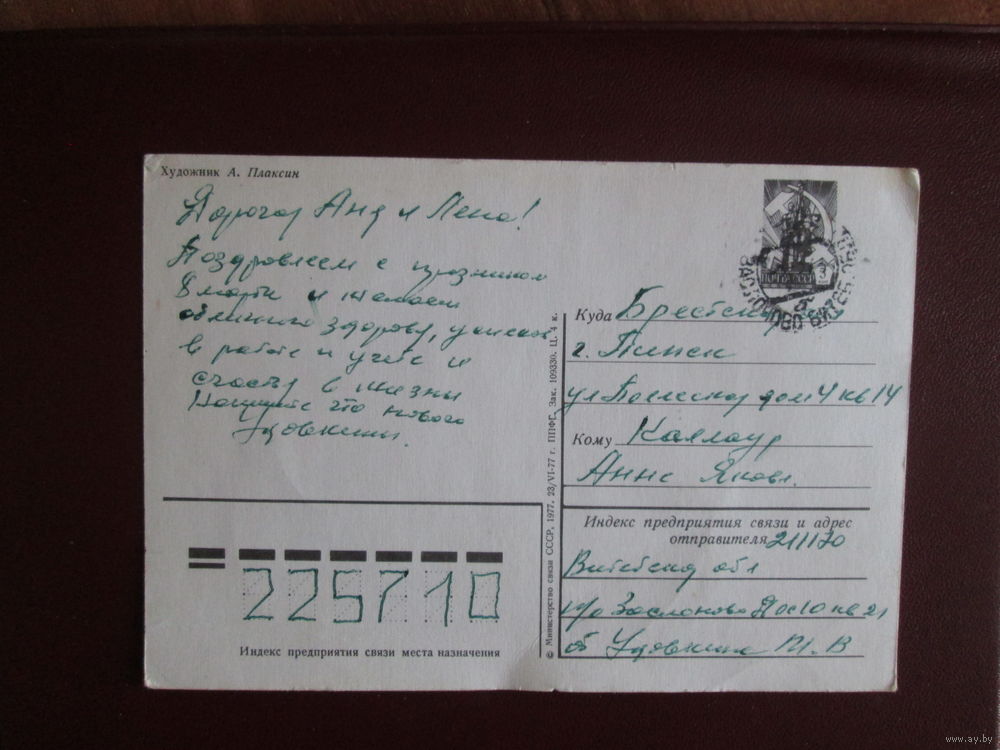 Художник А. Плаксин
Дорогая Аня и Лена!
Поздравляем с празником
8 марта и желаем
отличного здоровья, успехов
в работе и учебе и
счастья в жизни
Напишите что нового
Удовкины.
ПОЧТА СССР
3
Куда Брестская
г. Пинск
ул дом 4 кв 14
Кому Каллаур
Анне Яковл.
Индекс предприятия связи и адрес
отправителя 211170
Витебская обл
п/о Заслоново кв 21
Удовкина
225710
Индекс предприятия связи места назначения
© Министерство связи СССР, 1977. 23/VI-77 г. ППФГ. Зак. 109330. Ц. 4 к.
www.ay.by